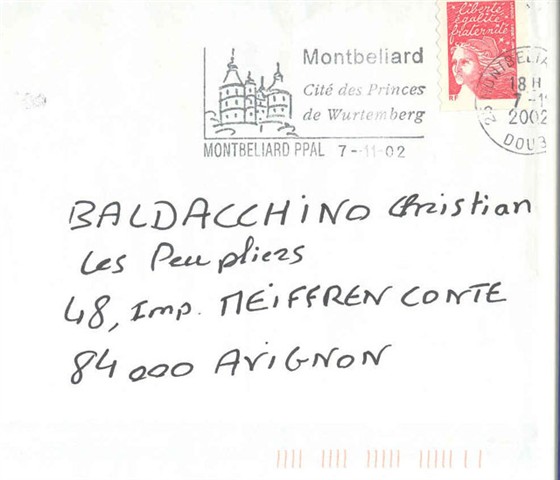 liberté
égalité
fraternité
Montbeliard
Cité des Princes
de Wurtemberg
MONTBELIARD PPAL 7-11-02
18 H
2002
BALDACCHINO Christian
Les Peupliers
48, Imp. MEIFFREN CONTE
84000 AVIGNON